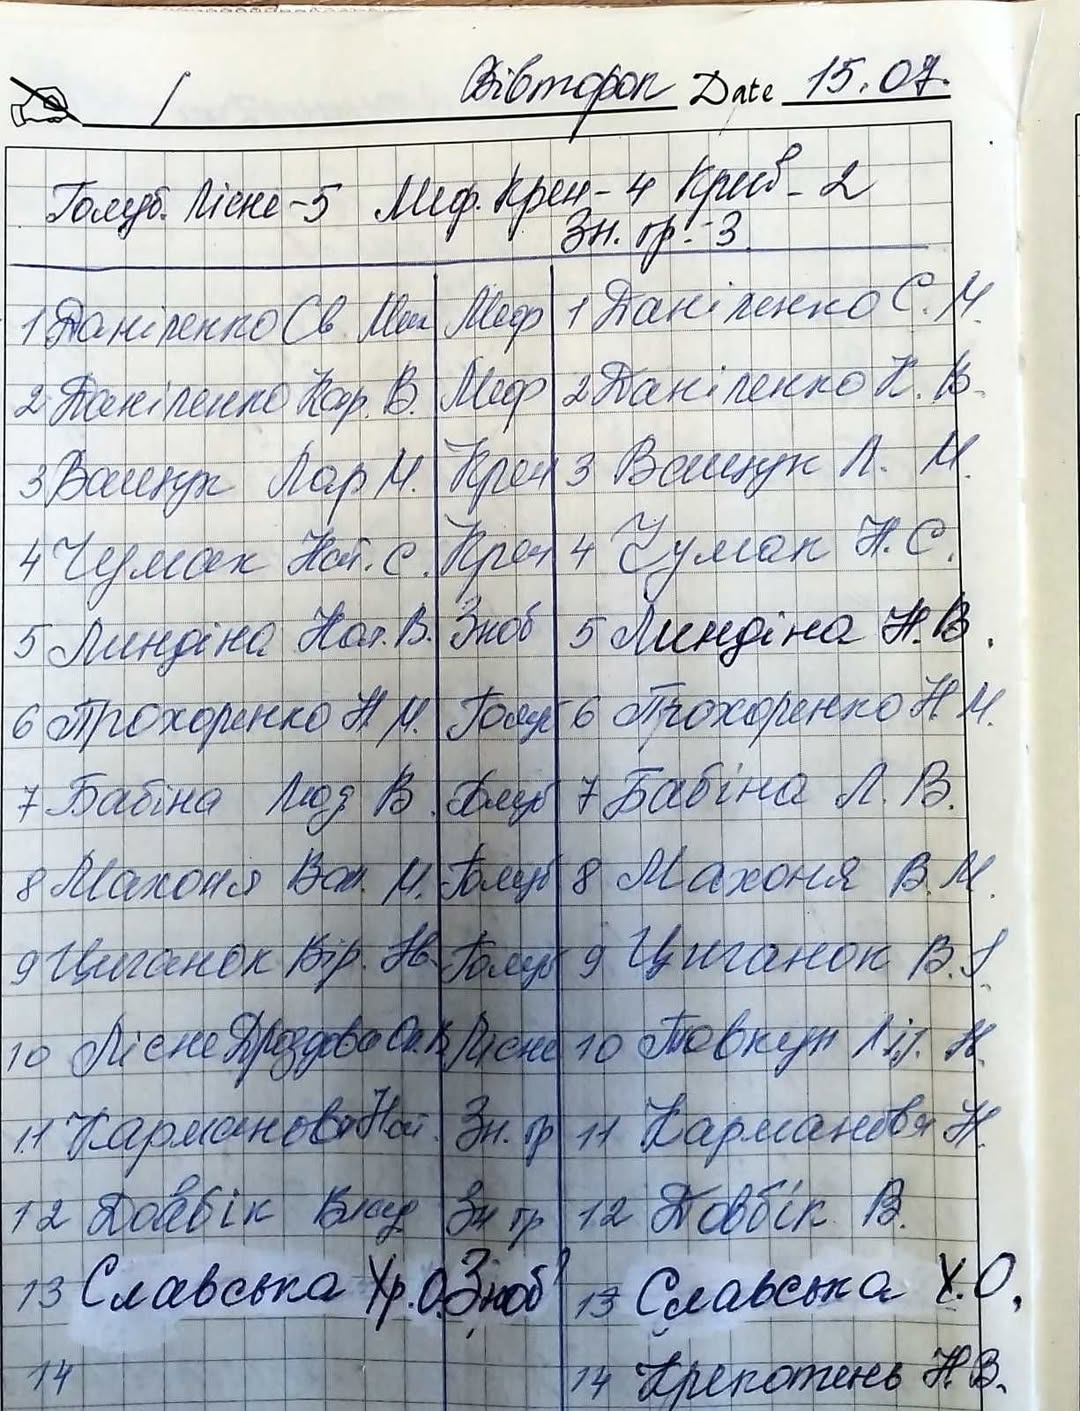 Вівторок Date 15.07.
Голуб. Лісне-5 Меф. Крен-4 Крив-2
Зн. гр.-3
1 Даніленко Св. Мик Меф 1 Даніленко С. М.
2 Даніленко Кар. В. Меф 2 Даніленко К. В.
3 Ващук Лар М. Крен 3 Ващук Л. М.
4 Чумак Нат. С. Крен 4 Чумак Н. С.
5 Линдіна Нат. В. Зноб 5 Линдіна Н. В.
6 Прохоренко Н М. Голуб 6 Прохоренко Н. М.
7 Бабіна Люд В. Голуб 7 Бабіна Л. В.
8 Махоня Вал. М. Голуб 8 Махоня В. М.
9 Циганок Вір. Голуб 9 Циганок В. І.
10 Лісне Дроздова Лісне 10 Товкун Лід. Н.
11 Карманова Нат. Зн. гр 11 Карманова Н.
12 Довбік Влад Зн гр 12 Довбік В.
13 Славська Хр. О. Зноб 13 Славська Х. О.
14 14 Крекотень Н. В.